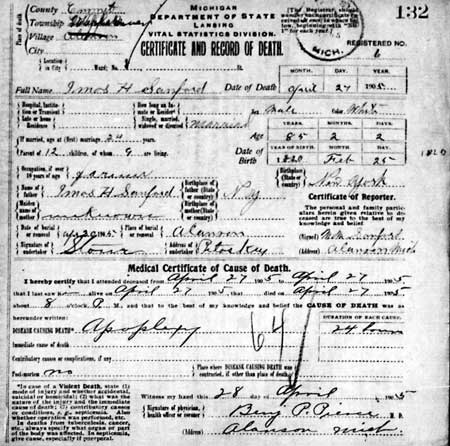 MICHIGAN
DEPARTMENT OF STATE
LANSING
VITAL STATISTICS DIVISION.
CERTIFICATE AND RECORD OF DEATH.
132
County Emmet
Township
Village Alanson
City
Place of death
MICH.
REGISTERED NO. 6
Location
Ward
Full Name Amos H Sanford
Date of Death
MONTH. DAY. YEAR.
April 27 1905
Hospital, Institution or Transient
Late or home Residence
How long an inmate or resident
Single, married, widowed or divorced Married
Sex Male Color White
If married, age at (first) marriage 24 years
Age
YEARS. MONTHS. DAYS.
85 2 2
Parent of 12 children, of whom 9 are living.
Date of Birth
YEAR OF BIRTH MONTH. DAY.
1820 Feb 25
Occupation, if over 10 years of age Farmer
Birthplace (State or country) New York
Name of father Amos H. Sanford
Birthplace of father (State or country) N. Y
mother unknown
Birthplace of mother (State or country)
Certificate of Reporter.
The personal and family particulars herein given relative to deceased are true to the best of my knowledge and belief
(Signed) Sanford
(Address) Alanson Mich
Date of burial or removal 1905
Place of burial or removal Alanson
Signature of undertaker
Address of undertaker Petoskey
Medical Certificate of Cause of Death.
I hereby certify that I attended deceased from April 27 1905 to April 27 1905
that I last saw alive on April 27 1905 that died on April 27 1905
about 8 o'clock, P. M., and that to the best of my knowledge and belief the CAUSE OF DEATH was as
hereunder written:
DURATION OF EACH CAUSE.
DISEASE CAUSING DEATH Apoplexy
64
24 hours
Immediate cause of death
Contributory causes or complications, if any
Post-mortem no
Place where DISEASE CAUSING DEATH was contracted, if other than place of death
In case of a Violent Death, state (1) mode of injury and whether accidental, suicidal or homicidal; (2) what was the nature of the injury and the immediate cause of death; (3) contributory causes or conditions, e. g., septicemia. Also whether operation was performed, etc.
In deaths from tuberculosis, cancer, etc., always specify what organ or part of the body was affected. In septicemia, give cause, especially if puerperal.
Witness my hand this 28 day of April 1905
Signature of physician, health officer or coroner Benj P. M. D.
Address Alanson Mich.